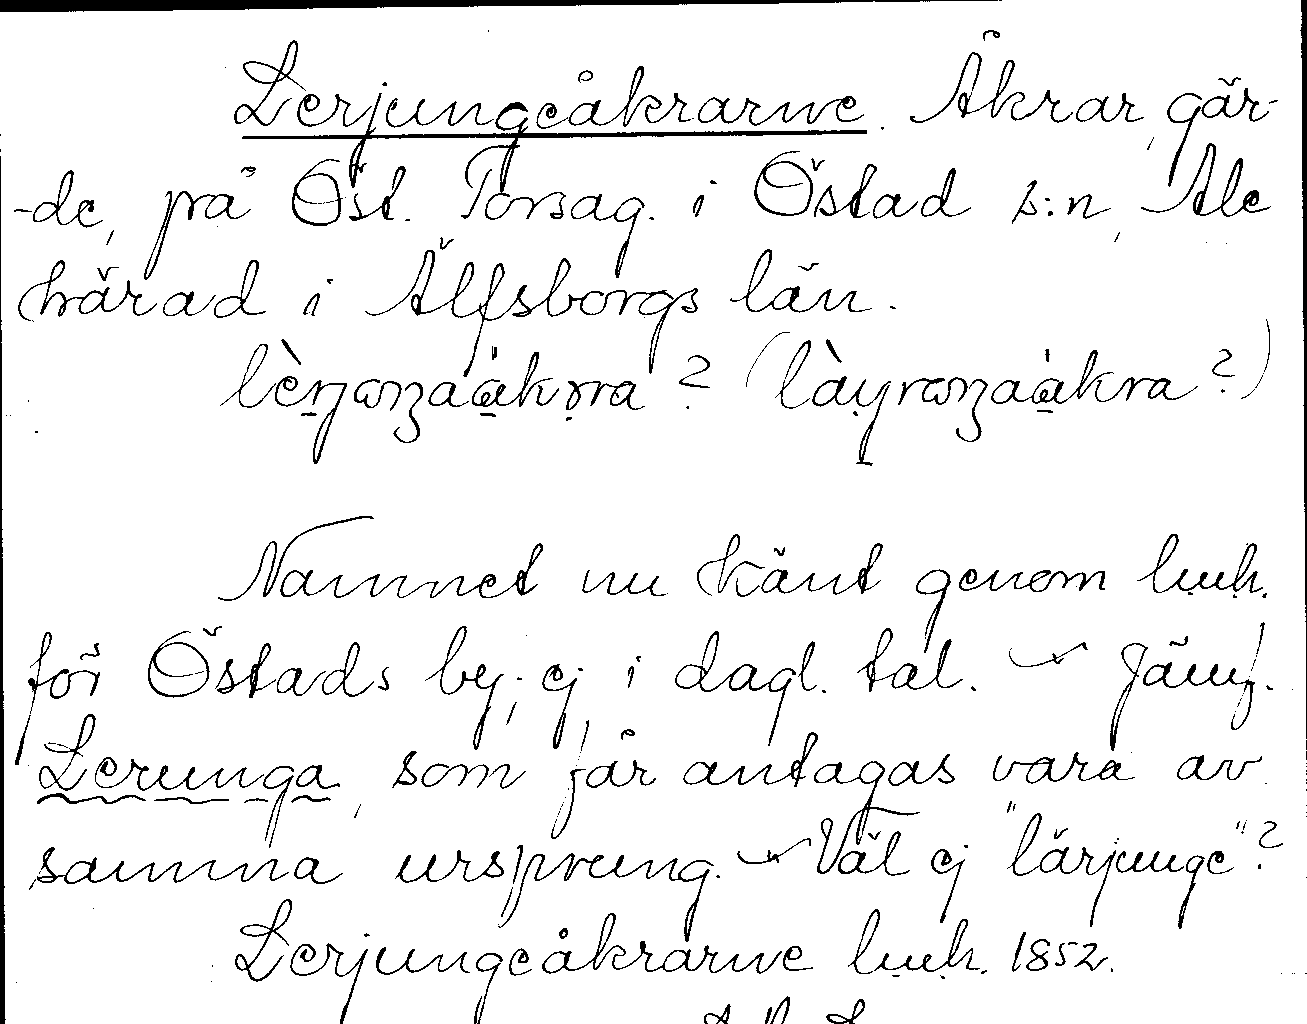 Lerjungeåkrarne. Åkrar, gär-
-de, på Öst. Torsag. i Östad s:n, Ale
härad i Älfsborgs län.
Namnet nu känt genom lmh.
för Östads by; ej i dagl. tal. — Jämf.
Lerunga, som får antagas vara av
samma ursprung. — Väl ej "lärjunge"?
Lerjungeåkrarne lmh. 1852.